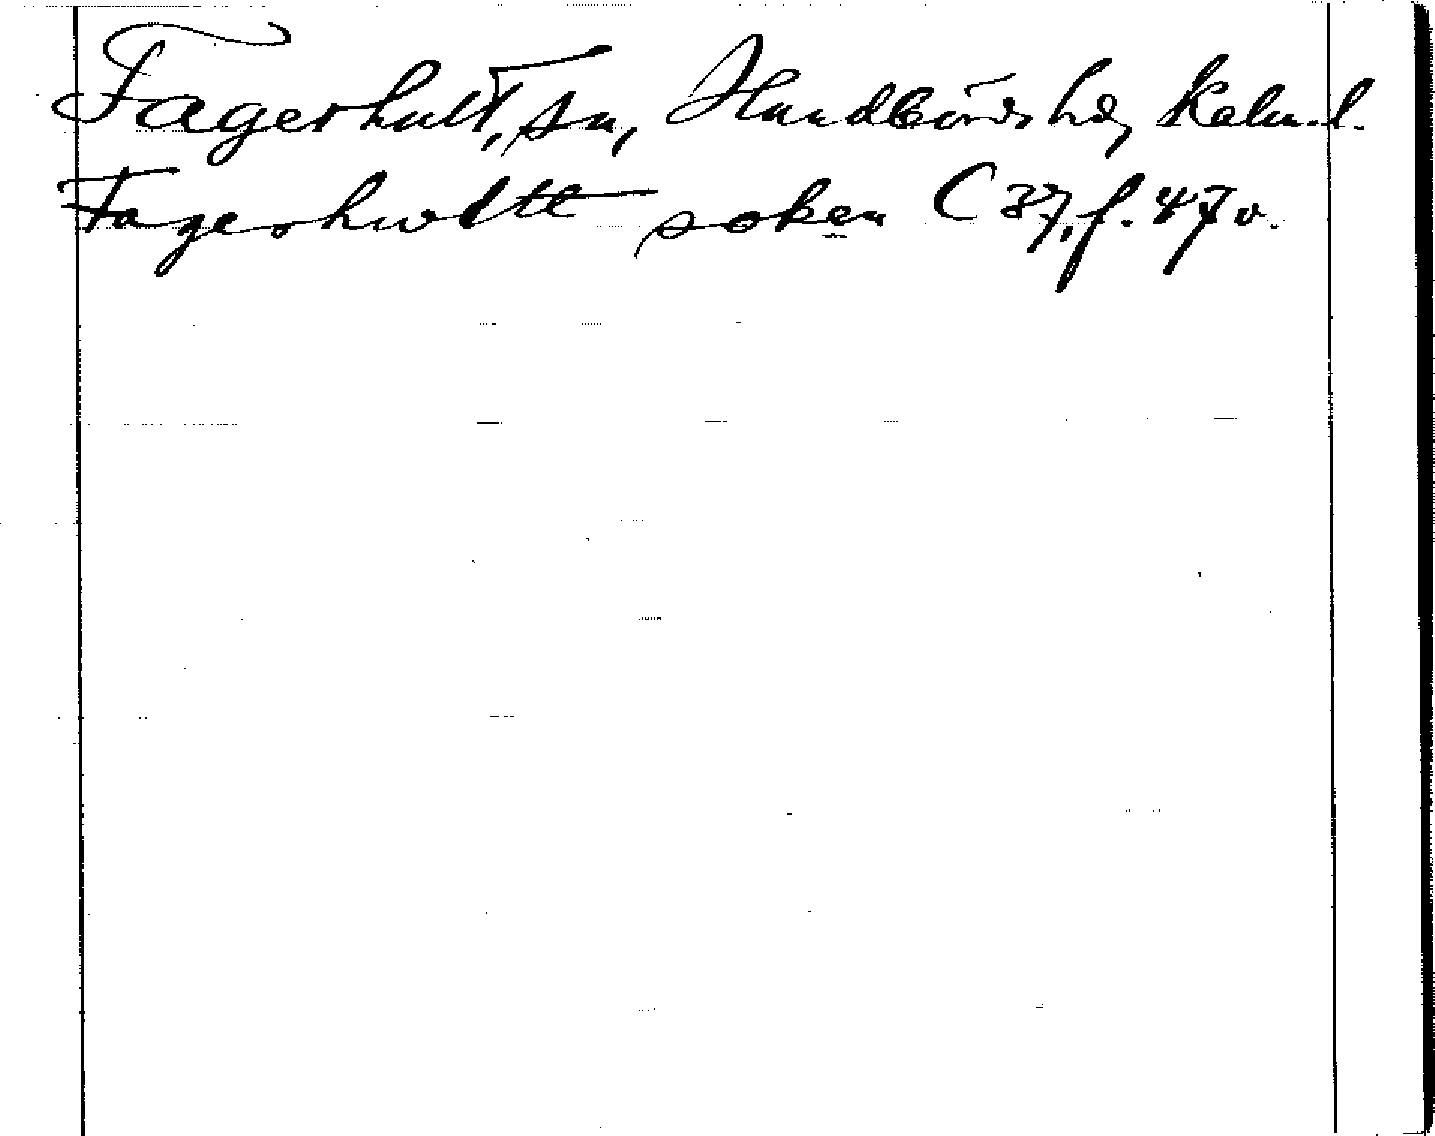 Fagerhult, sn, Handbörds hd, Kalm. l.
Fagerhwltt soken C 37, f. 47 v.